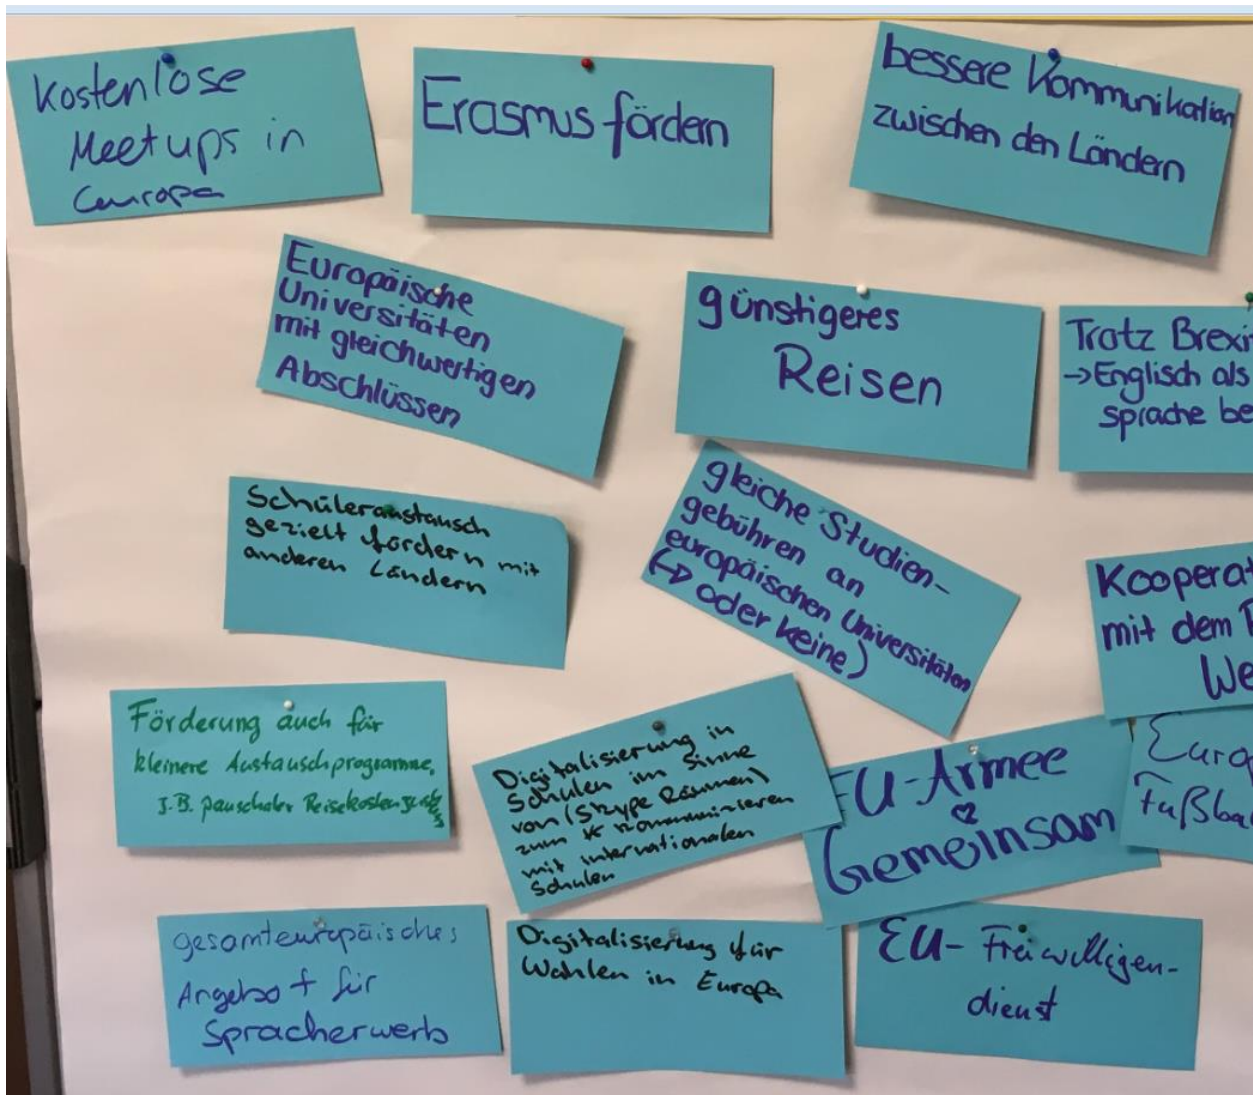 Kostenlose
Meetups in
Europa
Erasmus fördern
bessere Kommunikation
zwischen den Ländern
Europäische
Universitäten
mit gleichwertigen
Abschlüssen
günstigeres
Reisen
Trotz Brexi
→ Englisch als
sprache be
Schüleraustausch
gezielt fördern mit
anderen Ländern
gleiche Studien-
gebühren an
europäischen Universitäten
(↳ oder keine)
Kooperat
mit dem
We
Förderung auch für
kleinere Austauschprogramme,
z.B. pauschaler
Digitalisierung in
Schulen im Sinne
von (Skype Räumen)
zum kommunizieren
mit internationalen
Schulen
EU-Armee
Gemeinsam
Euro
Fußba
gesamteuropäisches
Angebot für
Spracherwerb
Digitalisierung für
Wahlen in Europa
EU-Freiwilligen-
dienst